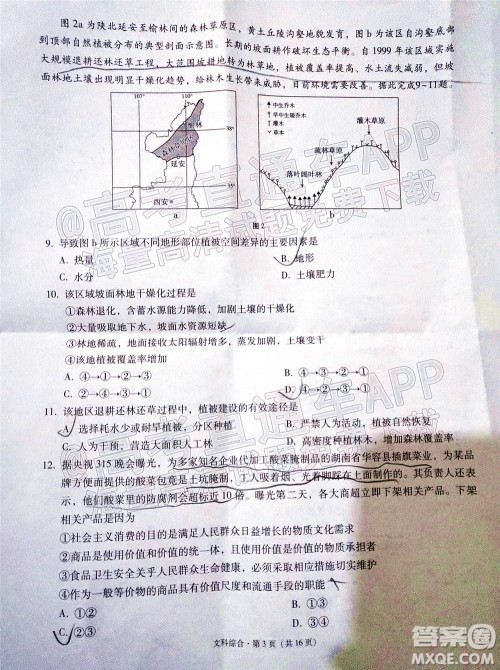 图2a为陕北延安至榆林间的森林草原区，黄土丘陵沟壑地貌发育，图b为该区自沟谷到
顶部自然植被分布的典型剖面示意图。长期的坡面耕作破坏生态平衡。自1999年该区域实施
大规模退耕还林还草工程，大范围坡耕地转为林草地，植被覆盖率提高、水土流失减弱，但坡
面林地土壤出现明显干燥化趋势，给林木生长带来威胁，目前需要改善。据此完成9~11题。
107° 110°
榆林
38°
森林草原区
延安
35°
西安
a
中生乔木
旱中生乔木
灌木
草本
灌木草原
疏林草原
落叶阔叶林
b
图2
9. 导致图b所示区域不同地形部位植被空间差异的主要因素是
A. 热量 B. 地形
C. 水分 D. 土壤肥力
10. 该区域坡面林地干燥化过程是
①森林退化，含蓄水源能力降低，加剧土壤的干燥化
②大量吸取地下水，坡面水资源短缺
③林地稀疏，地面接收太阳辐射增多，蒸发加剧，土壤变干
④该地植被覆盖率增加
A. ④→①→②→③ B. ④→①→③→②
C. ④→③→②→① D. ④→②→①→③
11. 该地区退耕还林还草过程中，植被建设的有效途径是
A. 选择耗水少或耐旱植被，分区种植 B. 植被自然恢复
C. 人为干预，加强人工灌溉 D. 多种植高大乔木，增加森林覆盖率
12. 据央视315晚会曝光，为多家知名企业代加工酸菜腌制品的湖南省华容县插旗菜业，为某品
牌方便面提供的酸菜包竟是土坑腌制，工人吸着烟、光着脚踩在上面制作的。其负责人还表
示，他们酸菜里的防腐剂会超标近10倍。曝光第二天，各大商超立即下架相关产品。下架相
关产品是因为
①社会主义消费的目的是满足人民群众日益增长的物质文化需求
②商品是使用价值和价值的统一体，且使用价值是价值的物质承担者
③食品卫生安全关乎人民群众身体健康，必须采取相应措施切实维护
④合格的商品才具有价值尺度和流通手段的职能
A. ①② B. ①③
C. ②③ D. ③④
文科综合·第3页（共16页）
@高考直通车APP
海量高清试题免费下载
高考直通车APP
答案圈
MXQE.COM